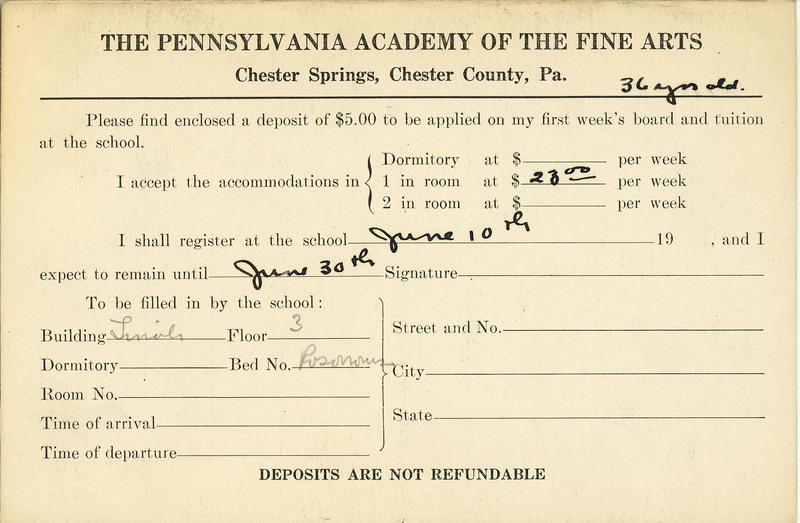 THE PENNSYLVANIA ACADEMY OF THE FINE ARTS
Chester Springs, Chester County, Pa.
36 yrs old.
Please find enclosed a deposit of $5.00 to be applied on my first week's board and tuition
at the school.
Dormitory at $ per week
I accept the accommodations in 1 in room at $ 23.00 per week
2 in room at $ per week
I shall register at the school June 10th 19 , and I
expect to remain until June 30th Signature
To be filled in by the school:
Building Floor 3
Street and No.
Dormitory Bed No.
City
Room No.
State
Time of arrival
Time of departure
DEPOSITS ARE NOT REFUNDABLE